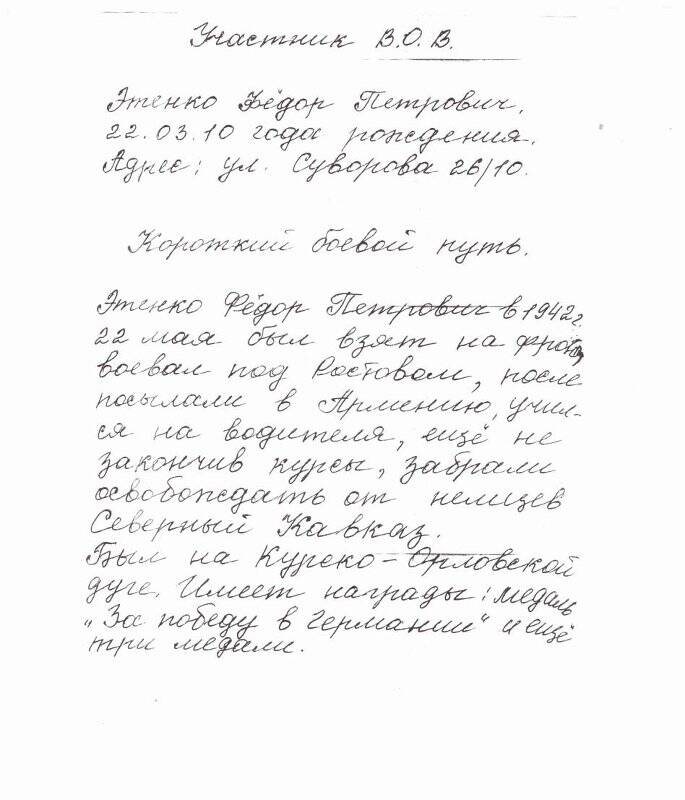 Участник В.О.В.
Этенко Фёдор Петрович,
22.03.10 года рождения.
Адрес: ул. Суворова 26/10.
Короткий боевой путь.
Этенко Фёдор Петрович в 1942г.
22 мая был взят на фронт,
воевал под Ростовом, после
посылали в Армению, учил-
ся на водителя, ещё не
закончив курсы, забрали
освобождать от немцев
Северный Кавказ.
Был на Курско-Орловской
дуге. Имеет награды: медаль
„За победу в Германии" и ещё
три медали.